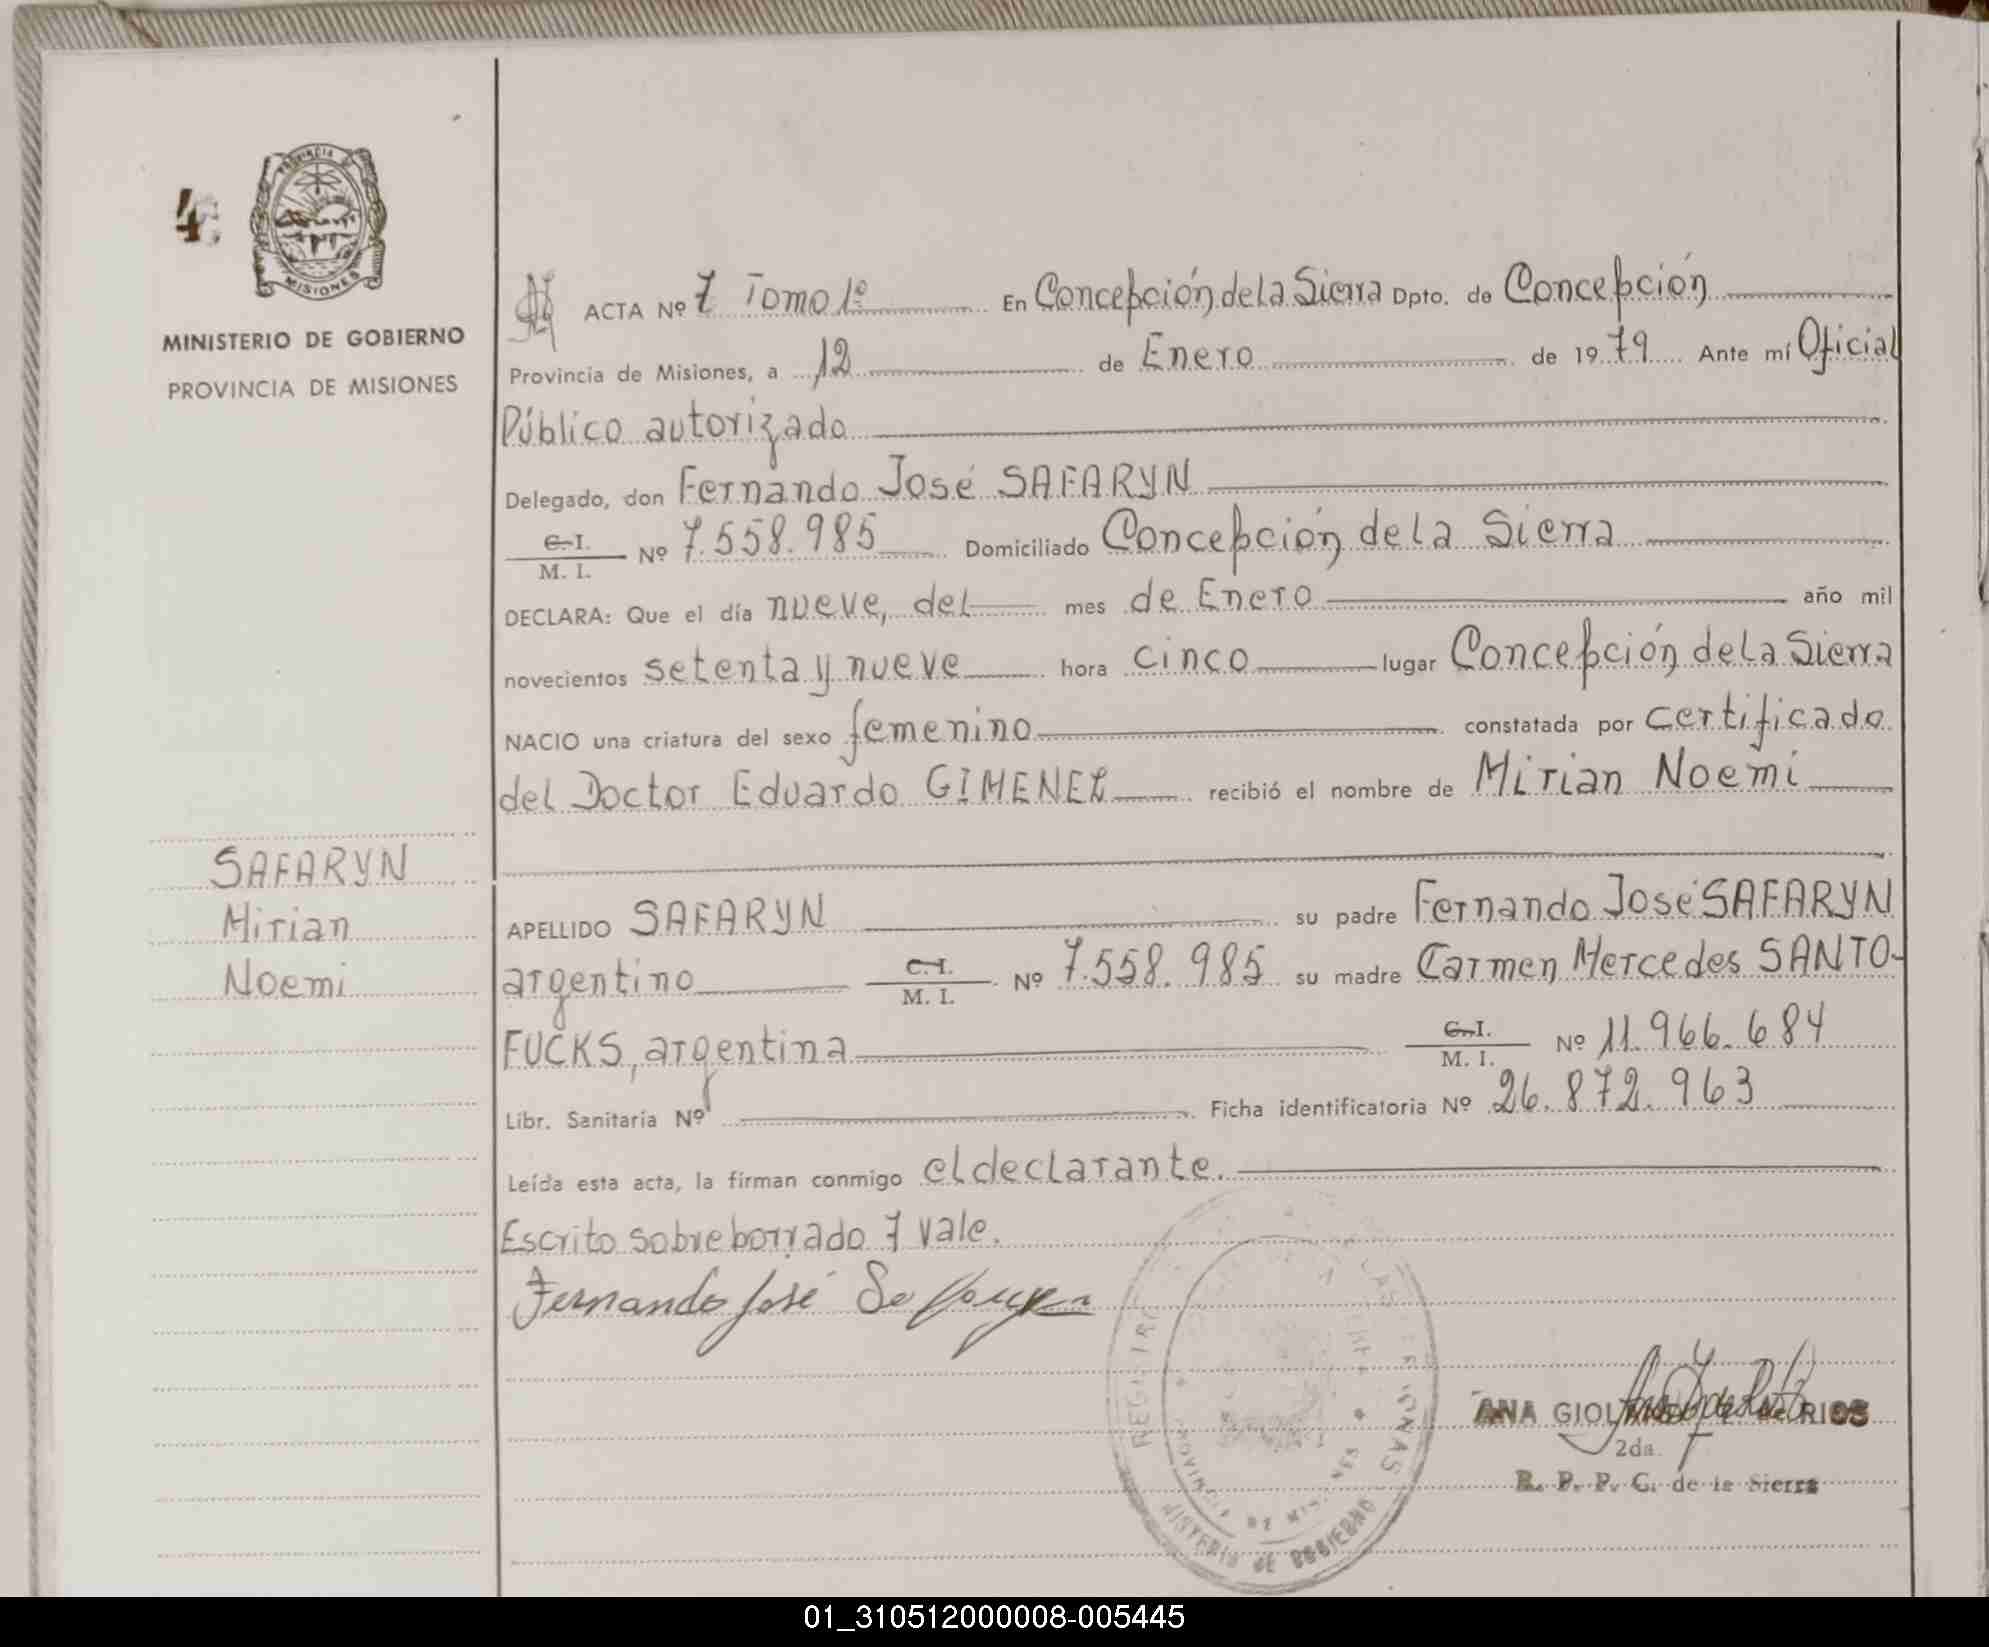 4
PROVINCIA D
MISIONES
MINISTERIO DE GOBIERNO
PROVINCIA DE MISIONES
SAFARYN
Mirian
Noemi
ACTA Nº 7 Tomo 1º En Concepción de la Sierra Dpto. de Concepción
Provincia de Misiones, a 12 de Enero de 1979 Ante mí Oficial
Público autorizado
Delegado, don Fernando José SAFARYN
C.I. / M. I. Nº 7.558.985 Domiciliado Concepción de la Sierra
DECLARA: Que el día nueve, del mes de Enero año mil
novecientos setenta y nueve hora cinco lugar Concepción de la Sierra
NACIO una criatura del sexo femenino constatada por certificado
del Doctor Eduardo GIMENEZ recibió el nombre de Mirian Noemi
APELLIDO SAFARYN su padre Fernando José SAFARYN
argentino C.I. / M. I. Nº 7.558.985 su madre Carmen Mercedes SANTO-
FUCKS, argentina C.I. / M. I. Nº 11.966.684
Libr. Sanitaria Nº Ficha identificatoria Nº 26.872.963
Leída esta acta, la firman conmigo el declarante.
Escrito sobre borrado 7 vale.
Fernando José
ANA de RIOS
2da.
R. P. P. C. de la Sierra
PROVINCIA DE MISIONES
MINISTERIO DE GOBIERNO
01_310512000008-005445